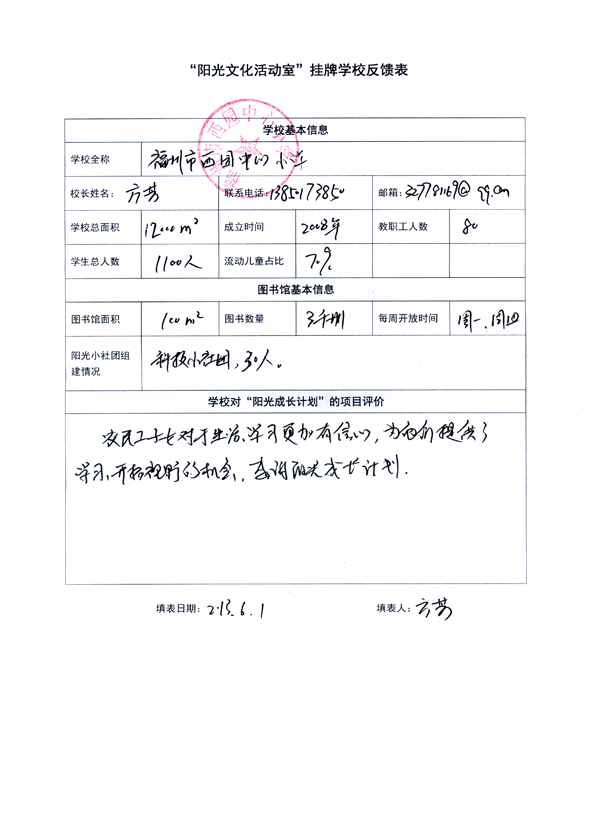 “阳光文化活动室”挂牌学校反馈表
学校基本信息
学校全称 福州市西园中心小学
校长姓名: 方芳 联系电话: 13850173850 邮箱: 327781169@qq.com
学校总面积 12000m² 成立时间 2008年 教职工人数 80
学生总人数 1100人 流动儿童占比 70%
图书馆基本信息
图书馆面积 100m² 图书数量 三千册 每周开放时间 周一、周四
阳光小社团组
建情况 科技小社团，30人。
学校对“阳光成长计划”的项目评价
农民工子女对于生活、学习更加有信心，为他们提供了
学习、开拓视野的机会，感谢阳光成长计划.
填表日期: 2013.6.1 填表人: 方芳